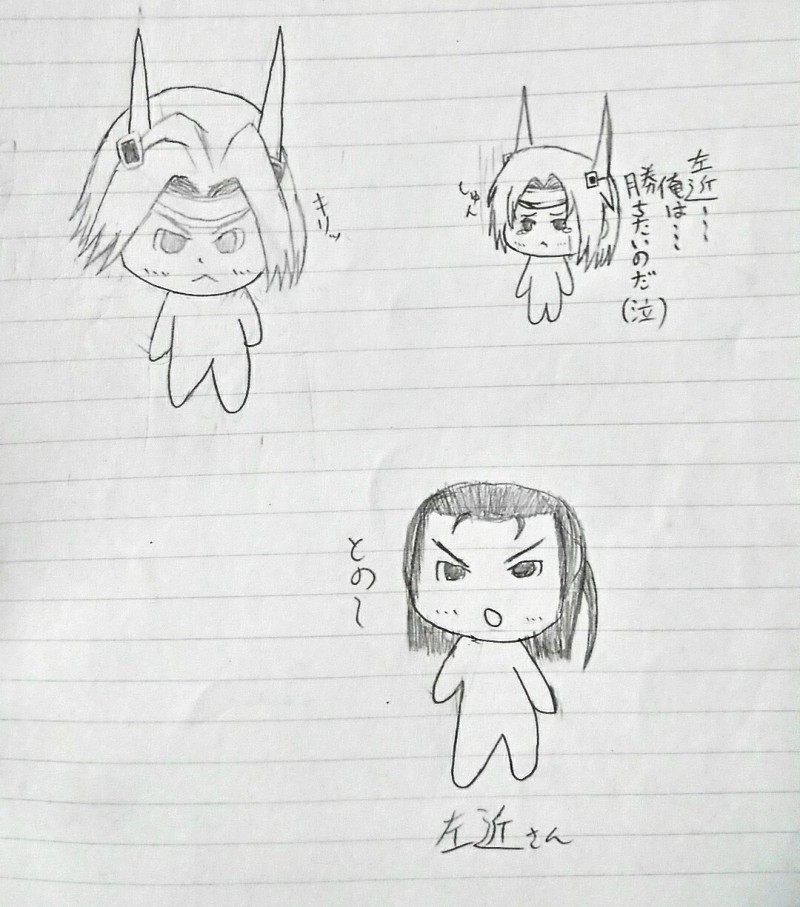 キリッ
しゅん
左近〜〜
俺は〜〜
勝ちたいのだ
(泣)
との〜
左近さん